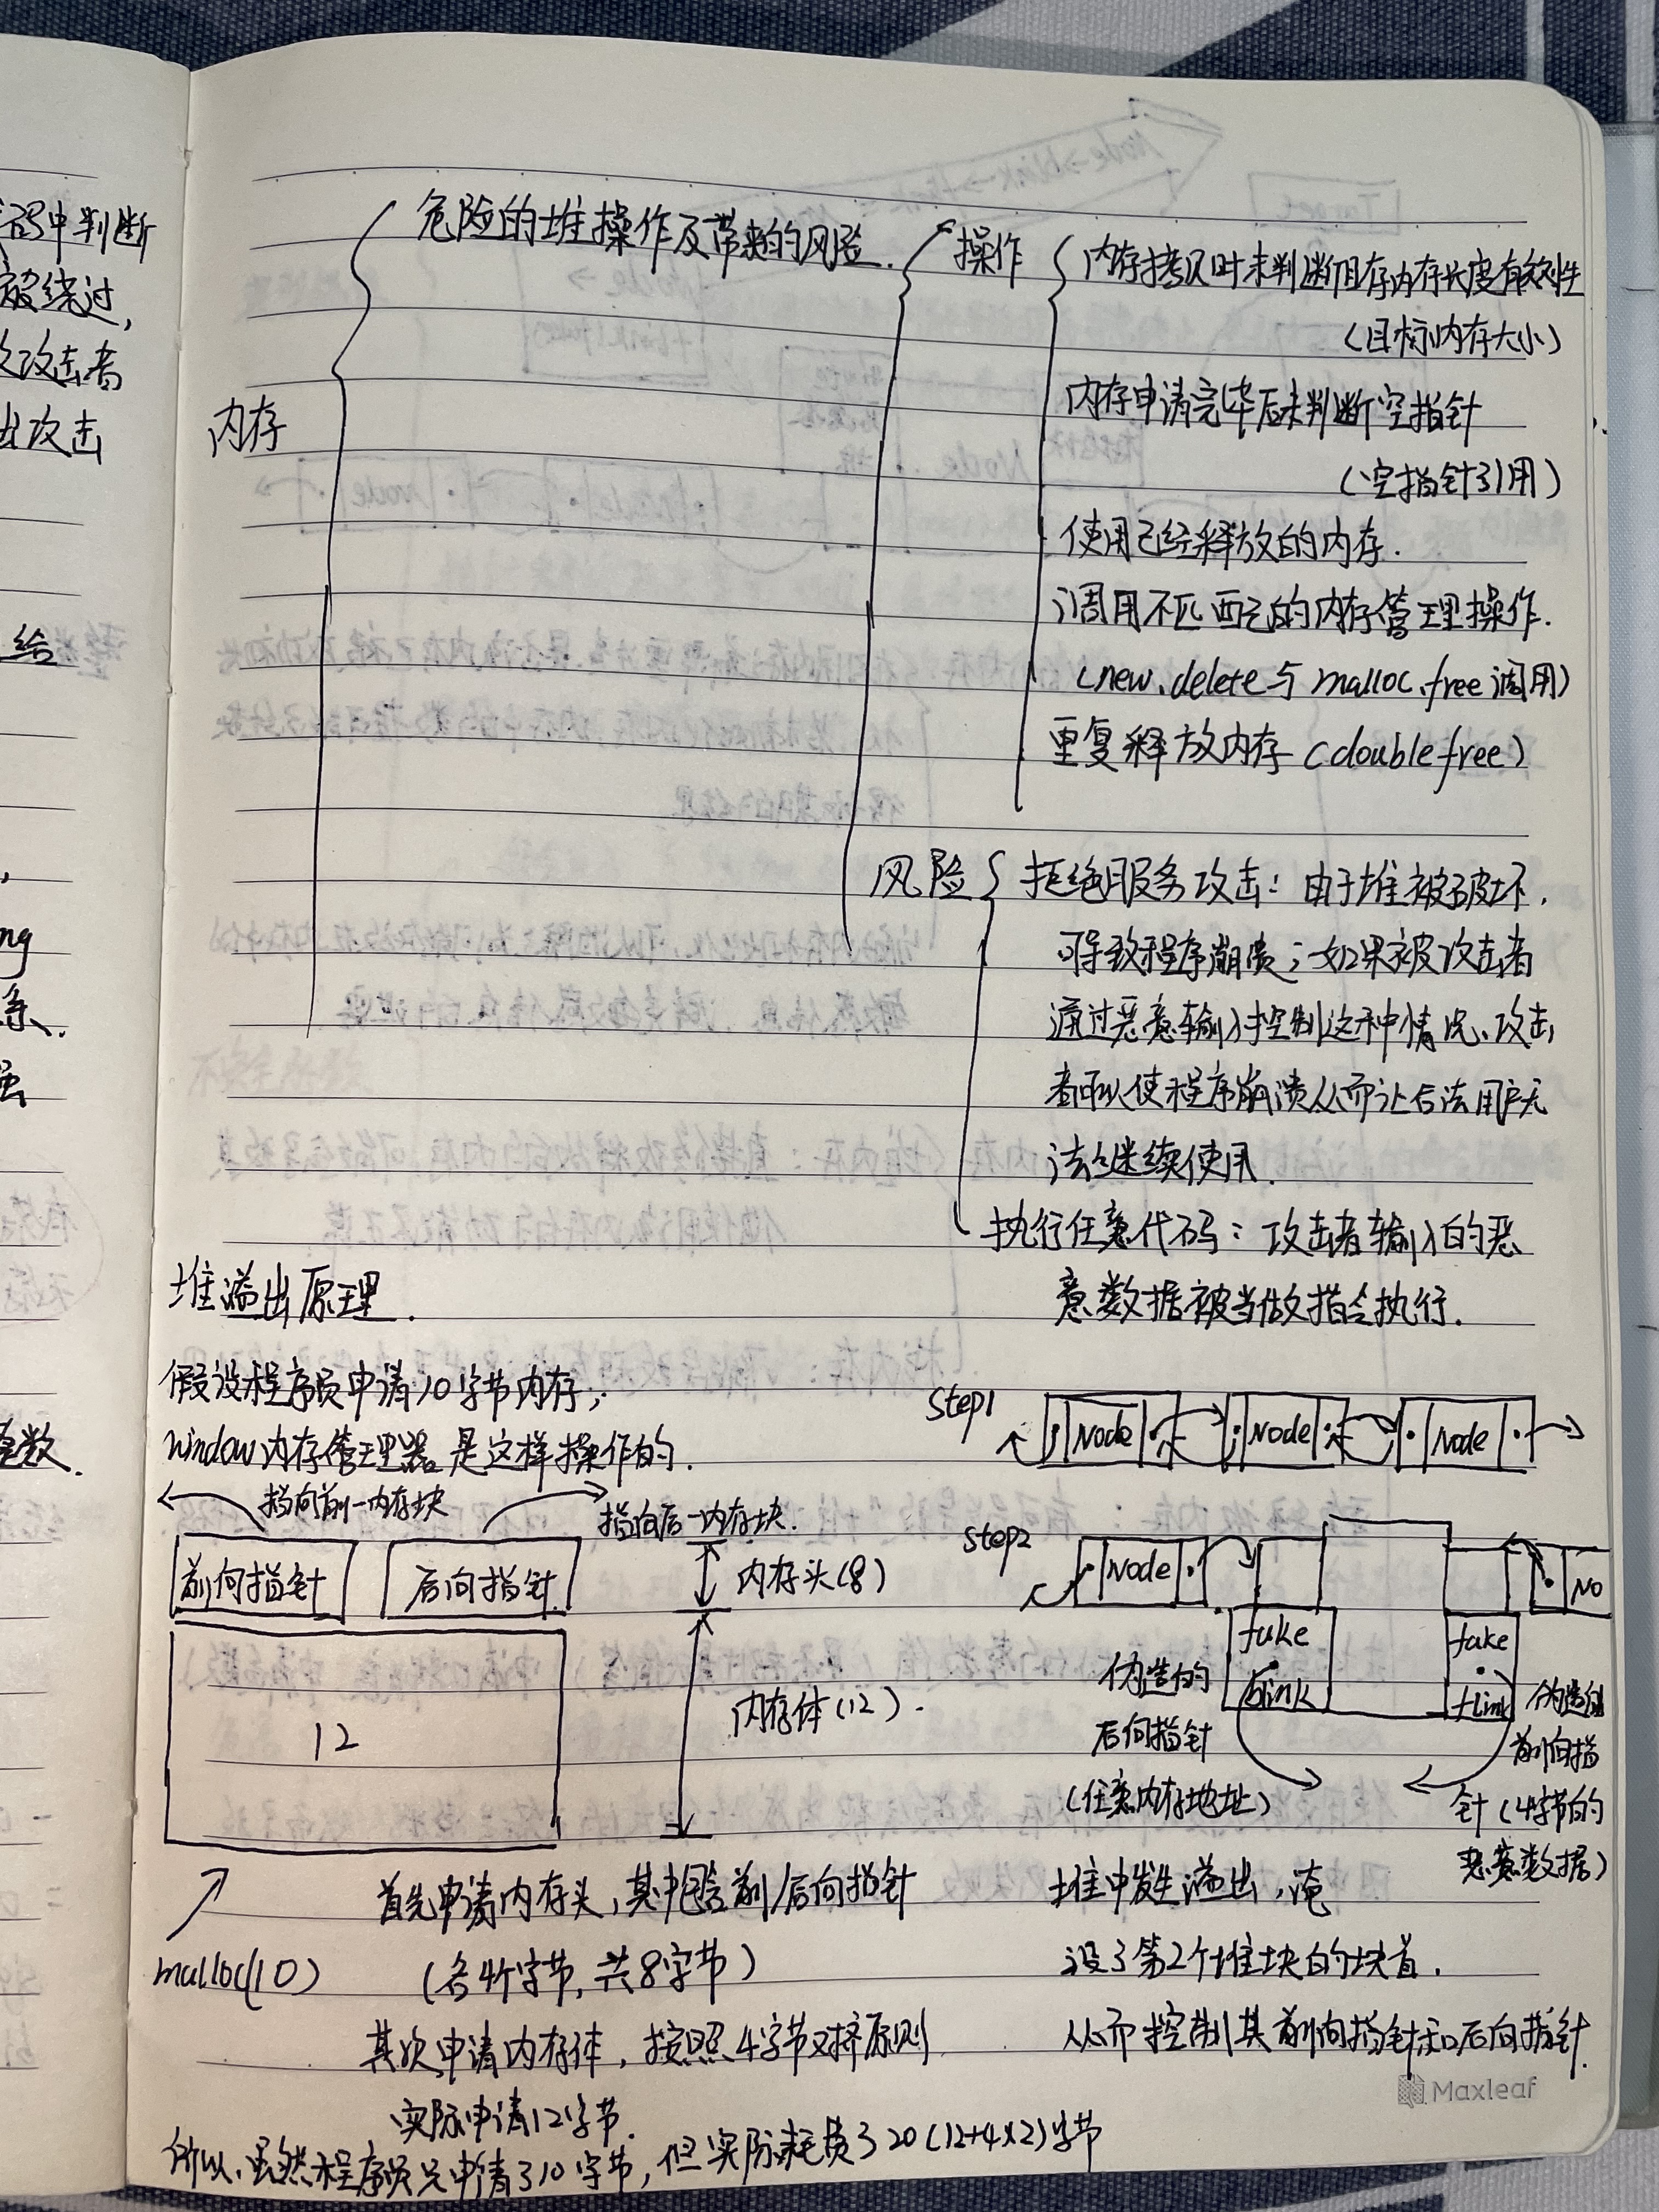 码中判断
被绕过,
攻击者
出攻击
给
ng
系.
数.
内存
危险的堆操作及带来的风险.
操作
内存拷贝时未判断内存长度有效性
(目标内存大小)
内存申请完毕后未判断空指针
(空指针引用)
使用已经释放的内存.
调用不匹配的内存管理操作.
(new.delete与malloc.free调用)
重复释放内存(double free)
风险
拒绝服务攻击: 由于堆被破坏.
可导致程序崩溃;如果被攻击者
通过恶意输入控制这种情况、攻击
者可以使程序崩溃从而让合法用户无
法继续使用.
执行任意代码: 攻击者输入的恶
意数据被当做指令执行.
堆溢出原理.
假设程序员申请10字节内存,
window内存管理器是这样操作的.
指向前一内存块
指向后一内存块.
前向指针
后向指针
内存头(8)
12
内存体(12).
malloc(10)
首先申请内存头,其中包含前/后向指针
(各4个字节,共8字节)
其次申请内存体,按照4字节对挤原则
实际申请12字节.
所以、虽然程序员只申请了10字节,但实际耗费了20(12+4×2)字节
Step1
Node
Node
Node
Step2
Node
No
fake
blink
fake
flink
伪造的
后向指针
(任意内存地址)
伪造的
前向指
针(4字节的
恶意数据)
堆中发生溢出,淹
没了第2个堆块的块首.
从而控制其前向指针和后向指针.
Maxleaf